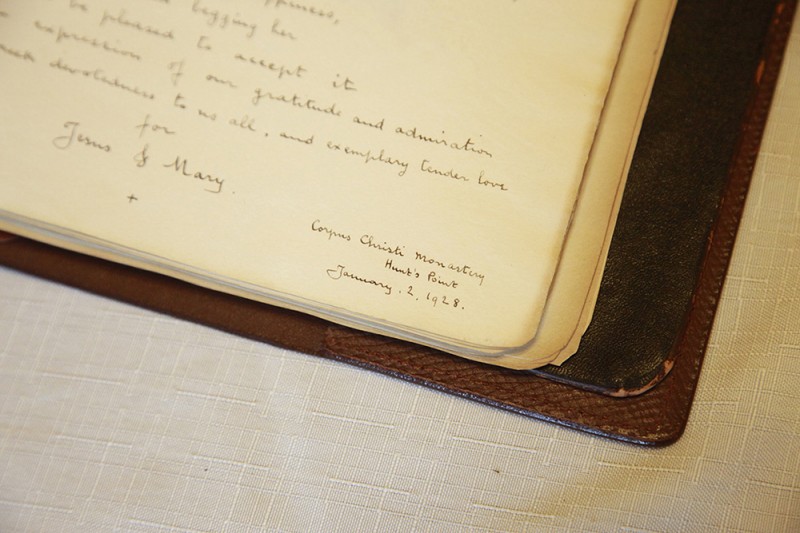 begging her
be pleased to accept it
expression of our gratitude and admiration
devotedness to us all, and exemplary tender love
for
Jesus & Mary.
+
Corpus Christi Monastery
Hunt's Point
January. 2. 1928.